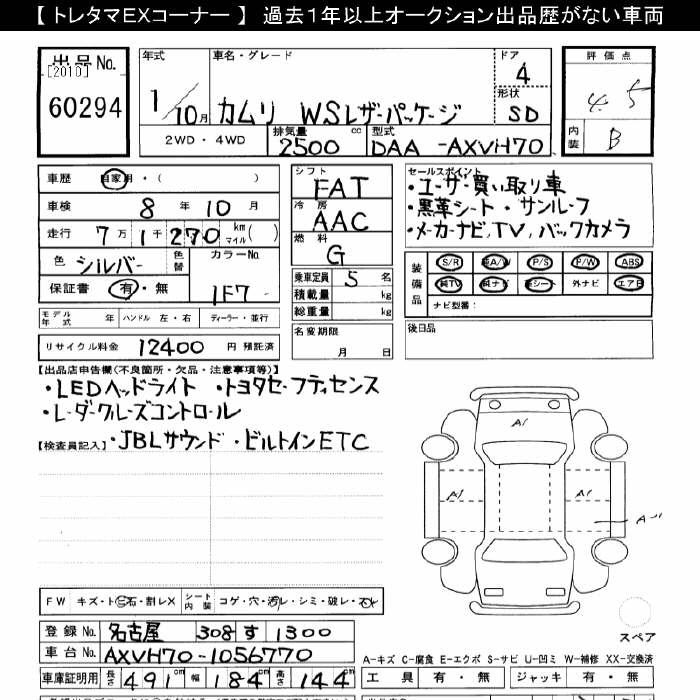 【 トレタマEXコーナー 】 過去1年以上オークション出品歴がない車両
出品 No.
[2010]
60294
年式
1/10月
車名・グレード
カムリ WSレザーパッケージ
ドア
4
形状
SD
評価点
4.5
内装
B
2WD・4WD
排気量
2500 cc
型式
DAA -AXVH70
車歴 自家用・( )
車検 8 年 10 月
走行 7万1千270 km マイル( )
色 シルバー 色替
カラーNo.
1F7
保証書 有・無
モデル年式 年 ハンドル 左・右 ディーラー・並行
リサイクル料金 12400 円 預託済
シフト
FAT
冷房
AAC
燃料
G
乗車定員 5 名
積載量 kg
総重量 kg
名変期限
月 日
セールスポイント
・ユーザー買い取り車
・黒革シート・サンルーフ
・メーカーナビ,TV,バックカメラ
装備品
S/R 純A/W P/S P/W ABS
純TV 純ナビ 革シート 外ナビ エアB
ナビ型番:
後日品
【出品店申告欄(不良箇所・欠品・注意事項等)】
・LEDヘッドライト ・トヨタセーフティセンス
・レーダークルーズコントロール
【検査員記入】・JBLサウンド ・ビルトインETC
A1
A1
A1
FW キズ・ト石・割レX シート内装 コゲ・穴・汚レ・シミ・破レ・スレ
登録 No. 名古屋 308 す 1300
車台 No. AXVH70-1056770
車庫証明用 長さ 491cm 幅 184cm 高さ 144cm
スペア
A-キズ C-腐食 E-エクボ S-サビ U-凹ミ W-補修 XX-交換済
工具 有・無 ジャッキ 有・無